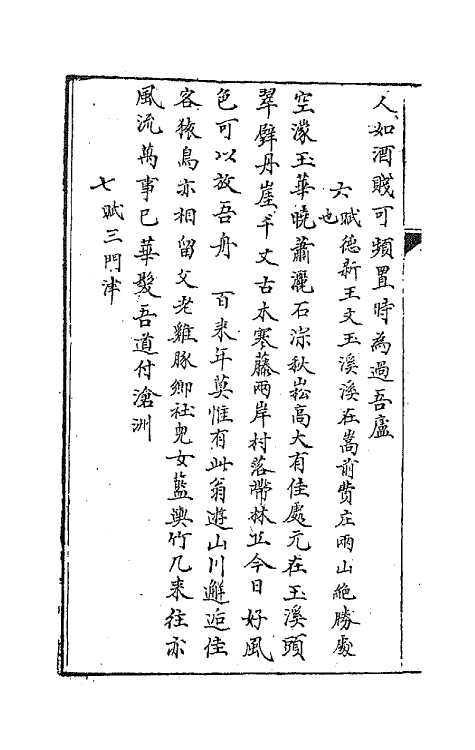 人如酒賤可頻置時為過吾廬
六賦德新王文玉溪溪在嵩前費庄兩山絶勝處
也
空濛玉華曉蕭灑石淙秋嵩高大有佳處元在玉溪頭
翠壁丹崖千丈古木寒藤兩岸村落帶林丘今日好風
色可以放吾舟　百来年莫惟有此翁遊山川邂逅佳
客猿鳥亦相留父老雞豚鄉社兒女籃輿竹几来往亦
風流萬事已華髮吾道付滄洲
七賦三門津